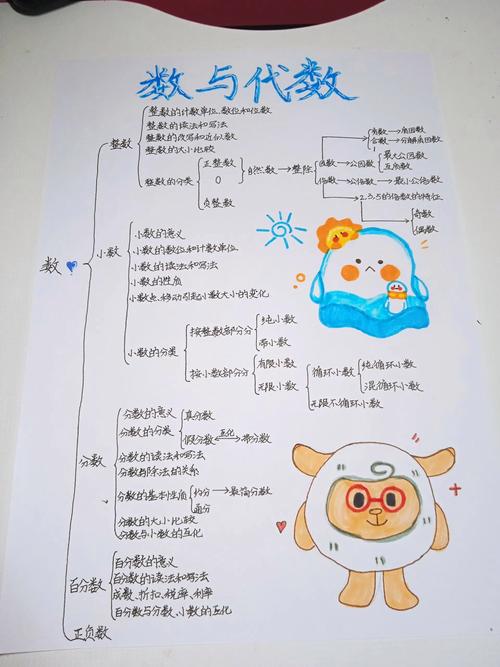 数与代数
整数的计数单位、数位和位数
整数的读法和写法
整数的改写和近似数
整数的大小比较
整数
整数的分类
正整数
0
负整数
自然数
整除
因数
公因数
最大公因数
互质数
质数
质因数
合数
分解质因数
倍数
公倍数
最小公倍数
2,3,5的倍数的特征
奇数
偶数
数
小数
小数的意义
小数的数位和计数单位
小数的读法和写法
小数的性质
小数点移动引起小数大小的变化
小数的分类
按整数部分分
纯小数
带小数
按小数部分分
有限小数
无限小数
循环小数
纯循环小数
混循环小数
无限不循环小数
分数
分数的意义
分数的分类
真分数
假分数
互化
带分数
分数的读法和写法
分数与除法的关系
分数的基本性质
约分
最简分数
通分
分数的大小比较
分数与小数的互化
百分数
百分数的意义
百分数的读法和写法
成数、折扣、税率、利率
百分数与分数、小数的互化
正负数